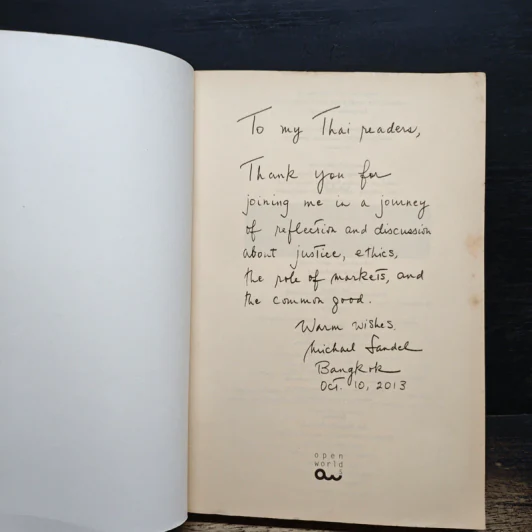 To my Thai readers,
Thank you for
joining me in a journey
of reflection and discussion
about justice, ethics,
the role of markets, and
the common good.
Warm wishes,
Michael Sandel
Bangkok
Oct. 10, 2013
open
world
s